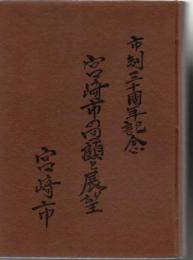 市制三十周年記念
宮崎市の回顧と展望
宮崎市